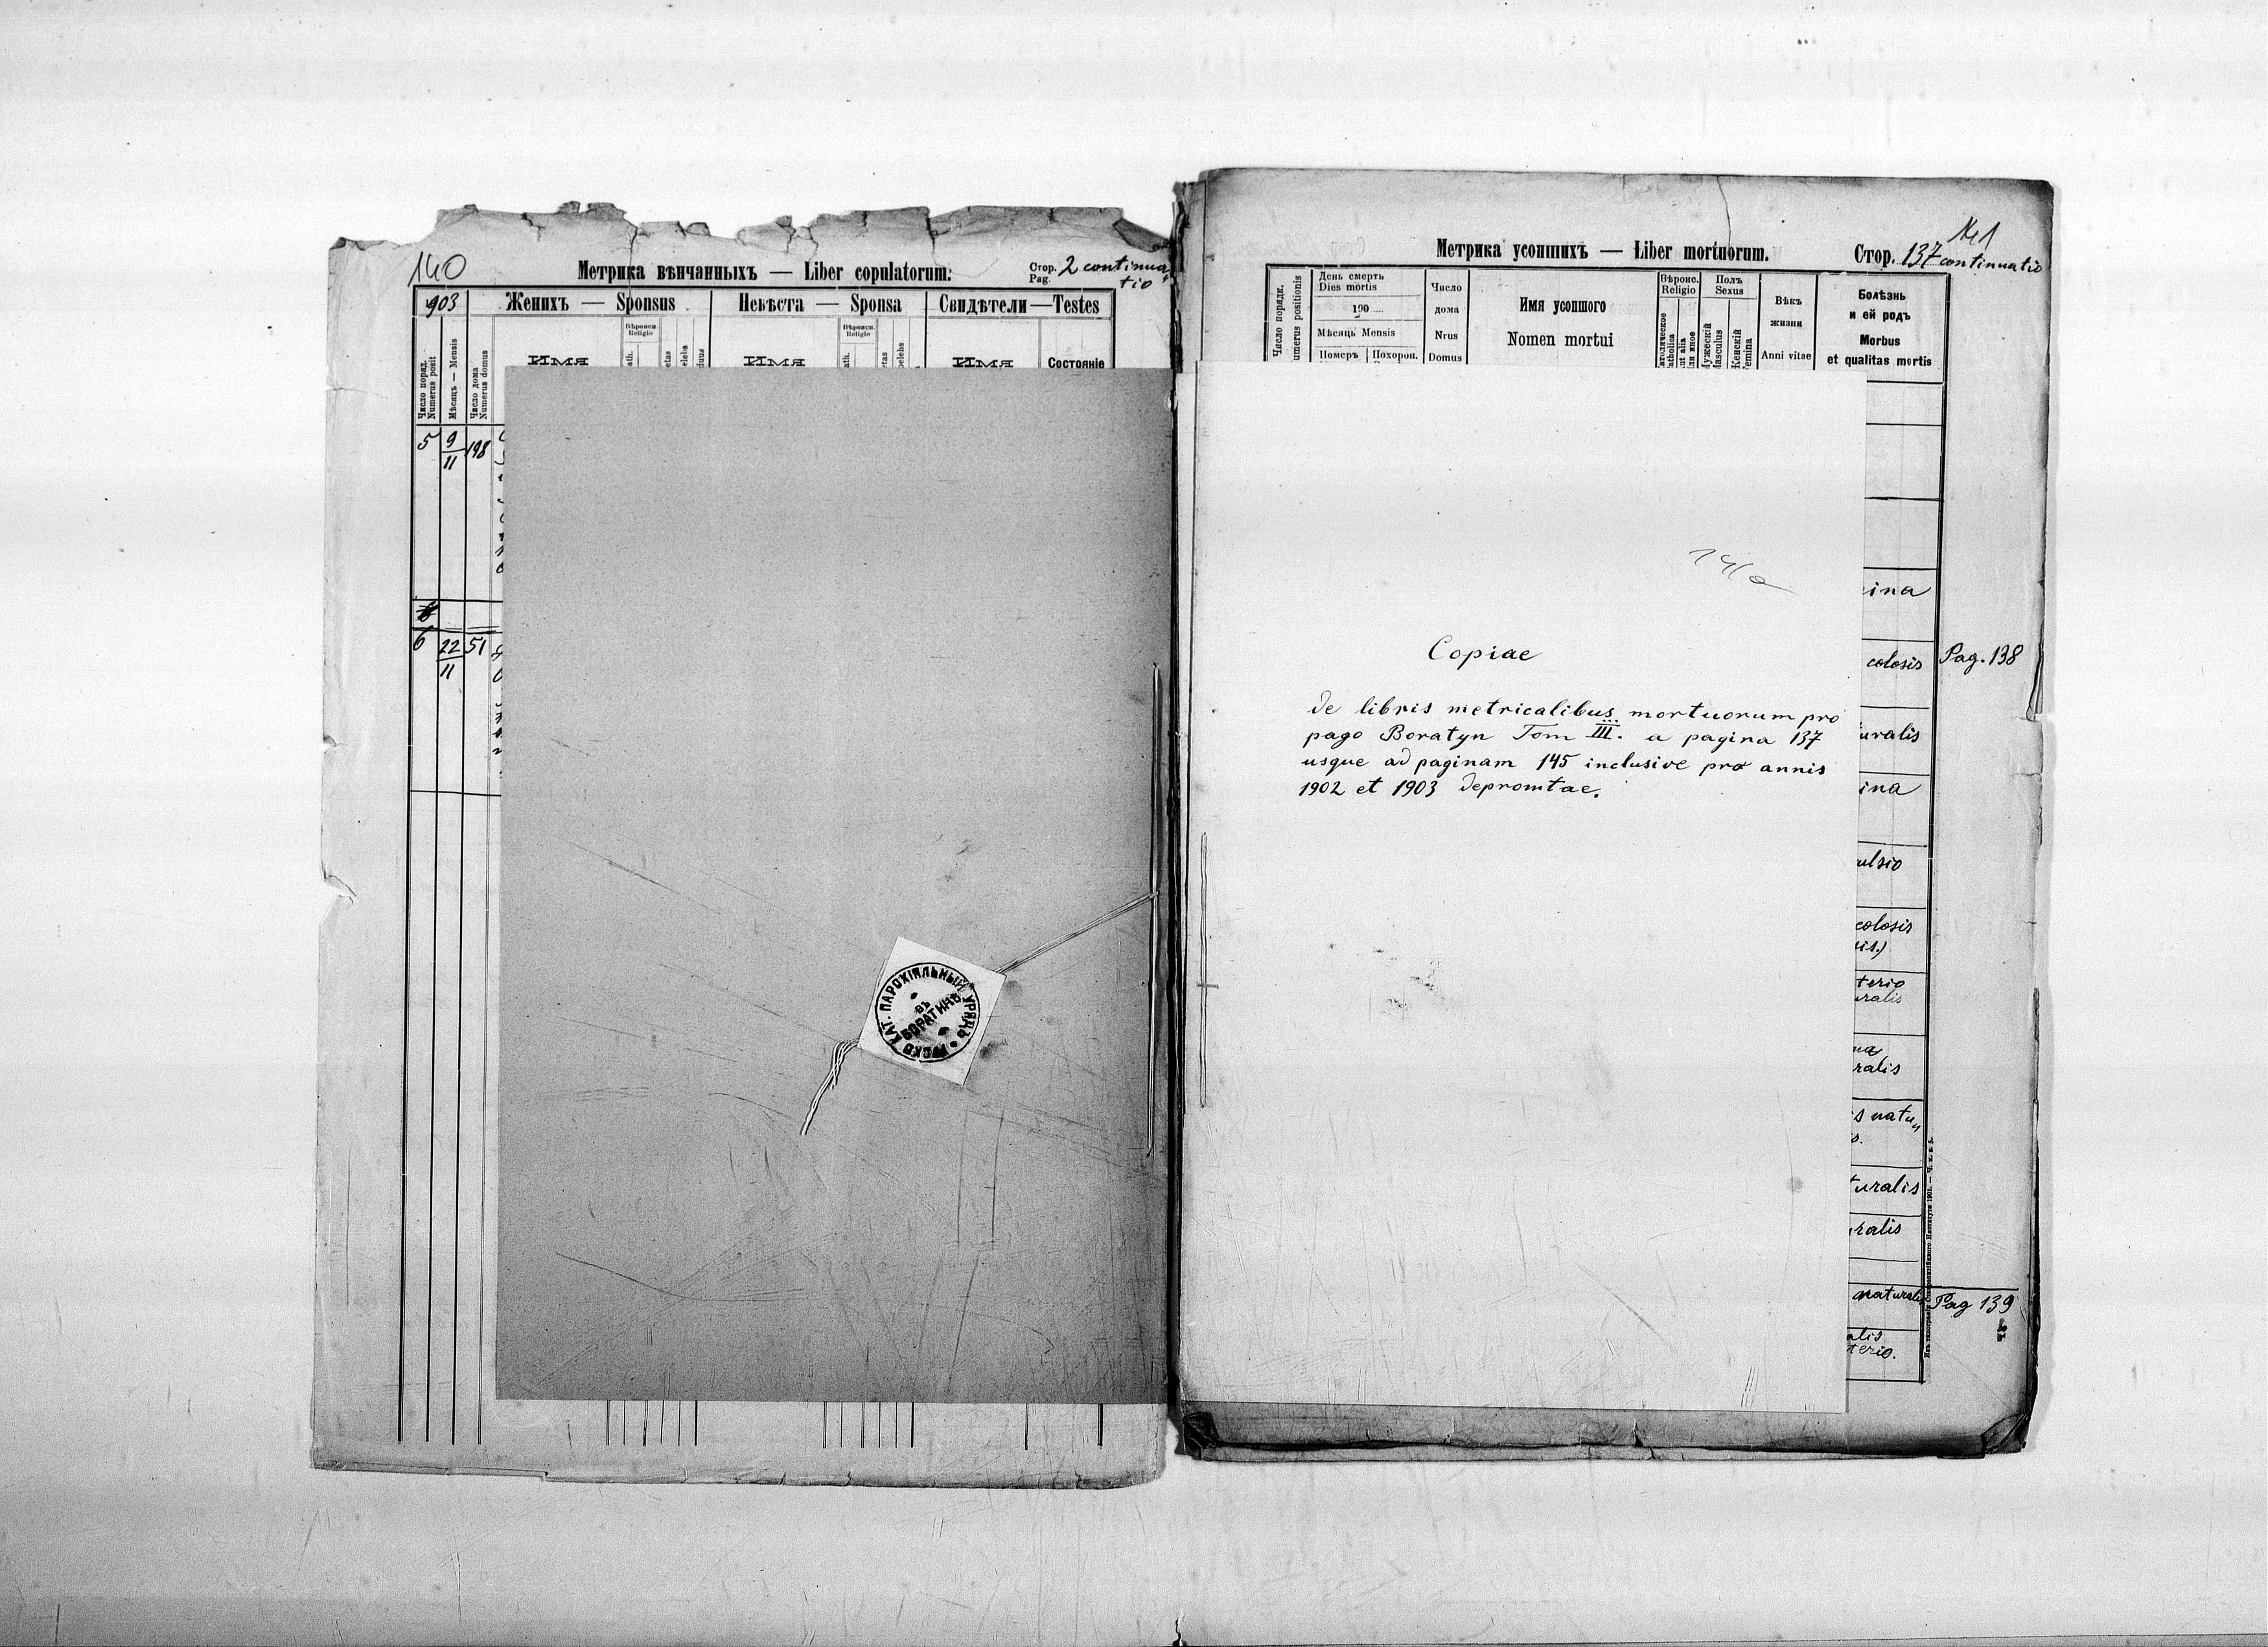 140
Метрика вѣнчанныхъ — Liber copulatorum.
Стор. 2 continua
Pag. tio
903
Женихъ — Sponsus
Невѣста — Sponsa
Свидѣтели — Testes
Число поряд.
Numerus posit
Мѣсяць — Mensis
Число дома
Numerus domus
Имя
Вѣроисп.
Religio
Имя
Вѣроисп.
Religio
Имя
Состояніе
5 9/11 198
6 22/11 51
РУСКО КАТ. ПАРОХІЯЛЬНЫЙ УРЯДЪ
ВЪ
БОРАТИНѢ
141
Метрика усопшихъ — Liber mortuorum.
Стор. 137 continuatio
Число порядк.
umerus positionis
День смерть
Dies mortis
190
Мѣсяць Mensis
Померъ Похорон.
Число
дома
Nrus
Domus
Имя усопшого
Nomen mortui
Вѣроис.
Religio
атолическое
atholica
ut alia
ли иное
Полъ
Sexus
ужескій
asculus
Женскій
emina
Вѣкъ
жизни
Anni vitae
Болѣзнь
и ей родъ
Morbus
et qualitas mortis
141a
Copiae
de libris metricalibus mortuorum pro
pago Boratyn Tom III. a pagina 137
usque ad paginam 145 inclusive pro annis
1902 et 1903 depromtae.
ina
colosis
Pag. 138
uralis
ina
ulsio
colosis
is.)
terio
uralis
na
ralis
s natu„
s.
turalis
uralis
naturalis
Pag 139
alis
terio.
Изъ типографіи Ставропигійского Института 1901. — Ч. х. в. в.